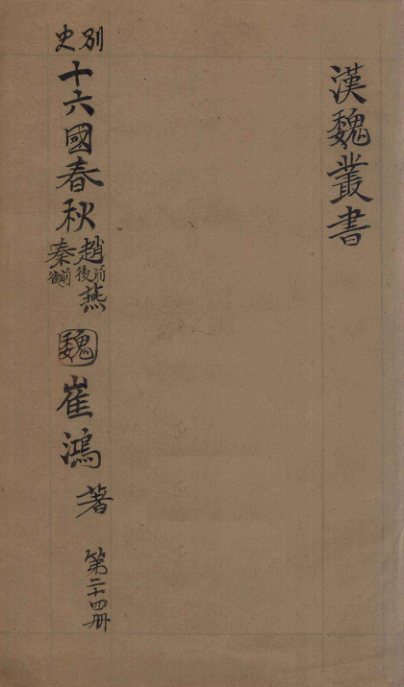 漢魏叢書
別史
十六國春秋
趙前後燕
秦前後
魏
崔鴻著
第二十四冊